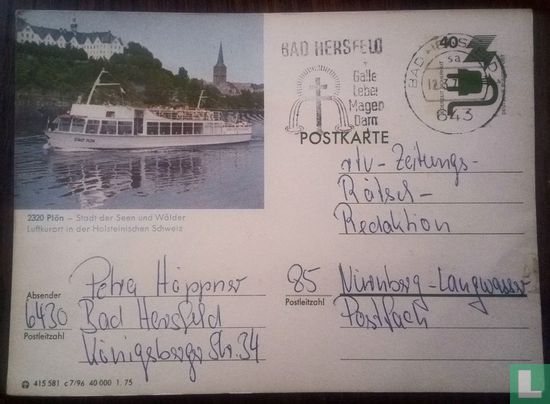 BAD HERSFELD
Galle
Leber
Magen
Darm
40
POSTKARTE
643
STADT PLÖN
2320 Plön – Stadt der Seen und Wälder
Luftkurort in der Holsteinischen Schweiz
rtv-Zeitungs-
Rätsel-
Redaktion
85 Nürnberg-Langwasser
Postleitzahl
Postfach
Absender
Petra Höppner
6430 Bad Hersfeld
Postleitzahl
Königsberger Str. 34
415 581 c 7/96 40 000 1. 75
catawiki